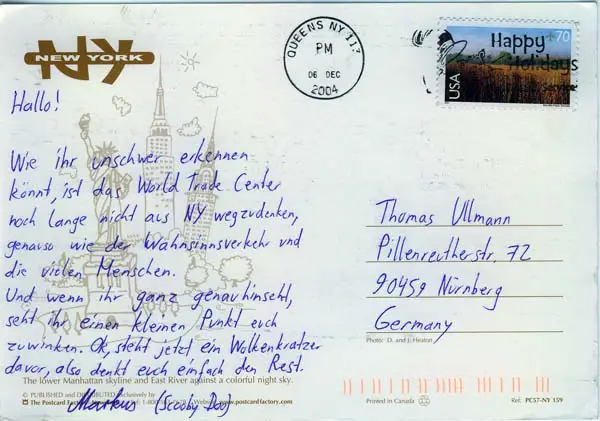 NY
NEW YORK
QUEENS NY 113
PM
06 DEC
2004
70
Happy
Holidays
USA
Service
Hallo!
Wie ihr unschwer erkennen
könnt, ist das World Trade Center
noch lange nicht aus NY wegzudenken,
genauso wie der Wahnsinnsverkehr und
die vielen Menschen.
Und wenn ihr ganz genau hinseht,
seht ihr einen kleinen Punkt euch
zuwinken. Ok, steht jetzt ein Wolkenkratzer
davor, also denkt euch einfach den Rest.
Markus (Scooby Doo)
Thomas Ullmann
Pillenreutherstr. 72
90459 Nürnberg
Germany
Photo: D. and J. Heaton
The lower Manhattan skyline and East River against a colorful night sky.
© PUBLISHED and DISTRIBUTED Exclusively by
The Postcard Factory www.postcardfactory.com
Printed in Canada
Ref: PC57-NY 159